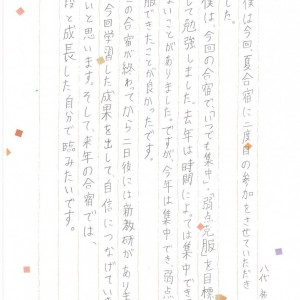 八代
僕は今回、夏合宿に二度目の参加をさせていただき
した。
僕は、今回の合宿で、「いつでも集中」、「弱点克服」を目標
して勉強しました。去年は時期によっては集中でき
ないことがありました。ですが、今年は集中でき、弱点
服できたことが良かったです。
の合宿が終わってから二日後には新教研があります
今回学習した成果を出して、自信につなげてい
いと思います。そして、来年の合宿では、
段と成長した自分で臨みたいです。